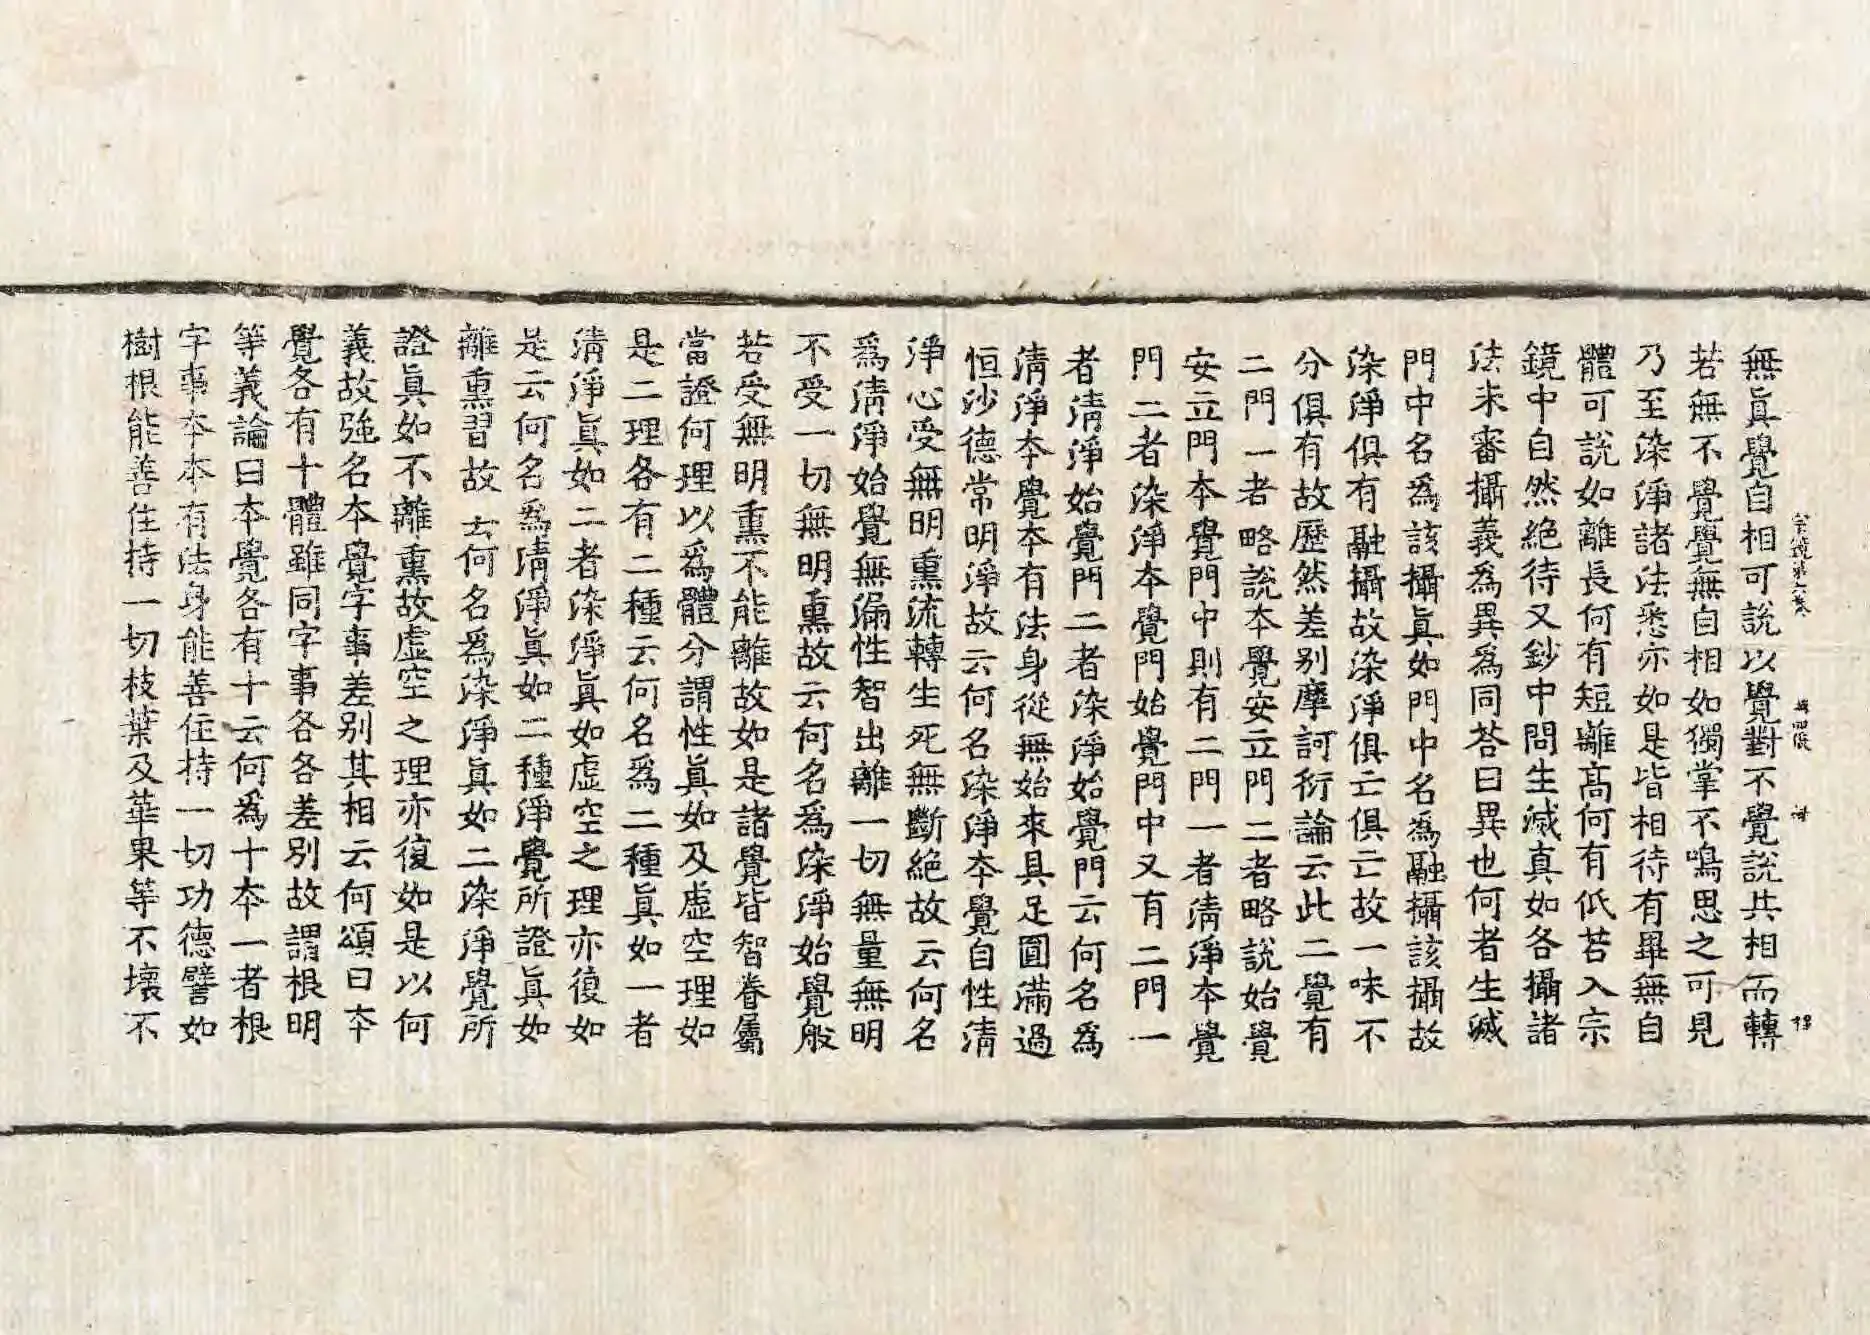 無眞覺自相可說以覺對不覺說共相而轉
若無不覺覺無自相如獨掌不鳴思之可見
乃至染淨諸法悉亦如是皆相待有畢無自
體可說如離長何有短離髙何有低若入宗
鏡中自然絶待又鈔中問生滅真如各攝諸
法未審攝義爲異爲同荅曰異也何者生滅
門中名爲該攝眞如門中名爲融攝該攝故
染淨俱有融攝故染淨俱亡俱亡故一味不
分俱有故歷然差别摩訶衍論云此二覺有
二門一者略說本覺安立門二者略說始覺
安立門本覺門中則有二門一者清淨本覺
門二者染淨本覺門始覺門中又有二門一
者清淨始覺門二者染淨始覺門云何名爲
清淨本覺本有法身從無始來具足圓滿過
恒沙德常明淨故云何名染淨本覺自性清
淨心受無明熏流轉生死無斷絶故云何名
爲清淨始覺無漏性智出離一切無量無明
不受一切無明熏故云何名爲染淨始覺般
若受無明熏不能離故如是諸覺皆智眷屬
當證何理以爲體分謂性眞如及虛空理如
是二理各有二種云何名爲二種眞如一者
清淨眞如二者染淨眞如虛空之理亦復如
是云何名爲清淨眞如二種淨覺所證眞如
離熏習故 云何名爲染淨眞如二染淨覺所
證眞如不離熏故虛空之理亦復如是以何
義故強名本覺字事差别其相云何頌曰本
覺各有十體雖同字事各各差别故謂根明
等義論曰本覺各有十云何爲十本一者根
字事本本有法身能善住持一切功德譬如
樹根能善住持一切枝葉及華果等不壞不